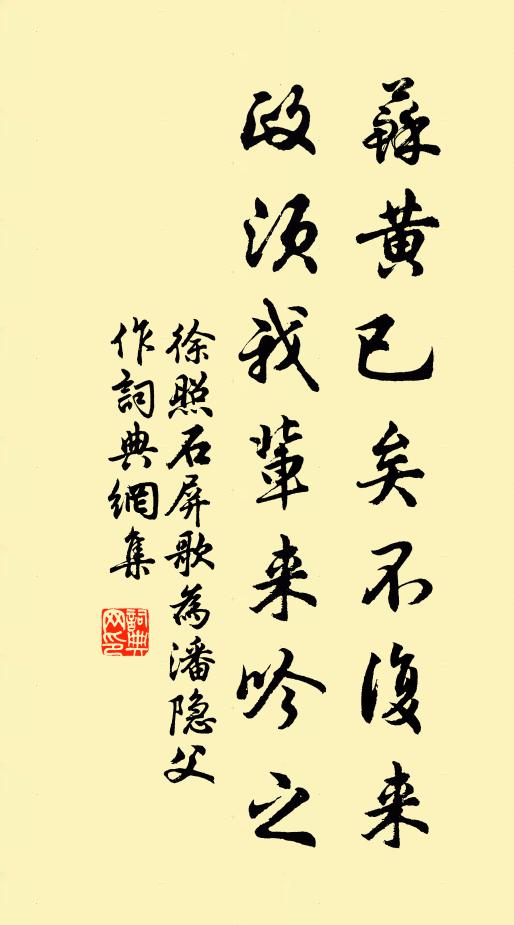 蘇黄已矣不復来
政須我輩来吟之
徐照石屏歌為潘隐父
作詞典網集
詞典